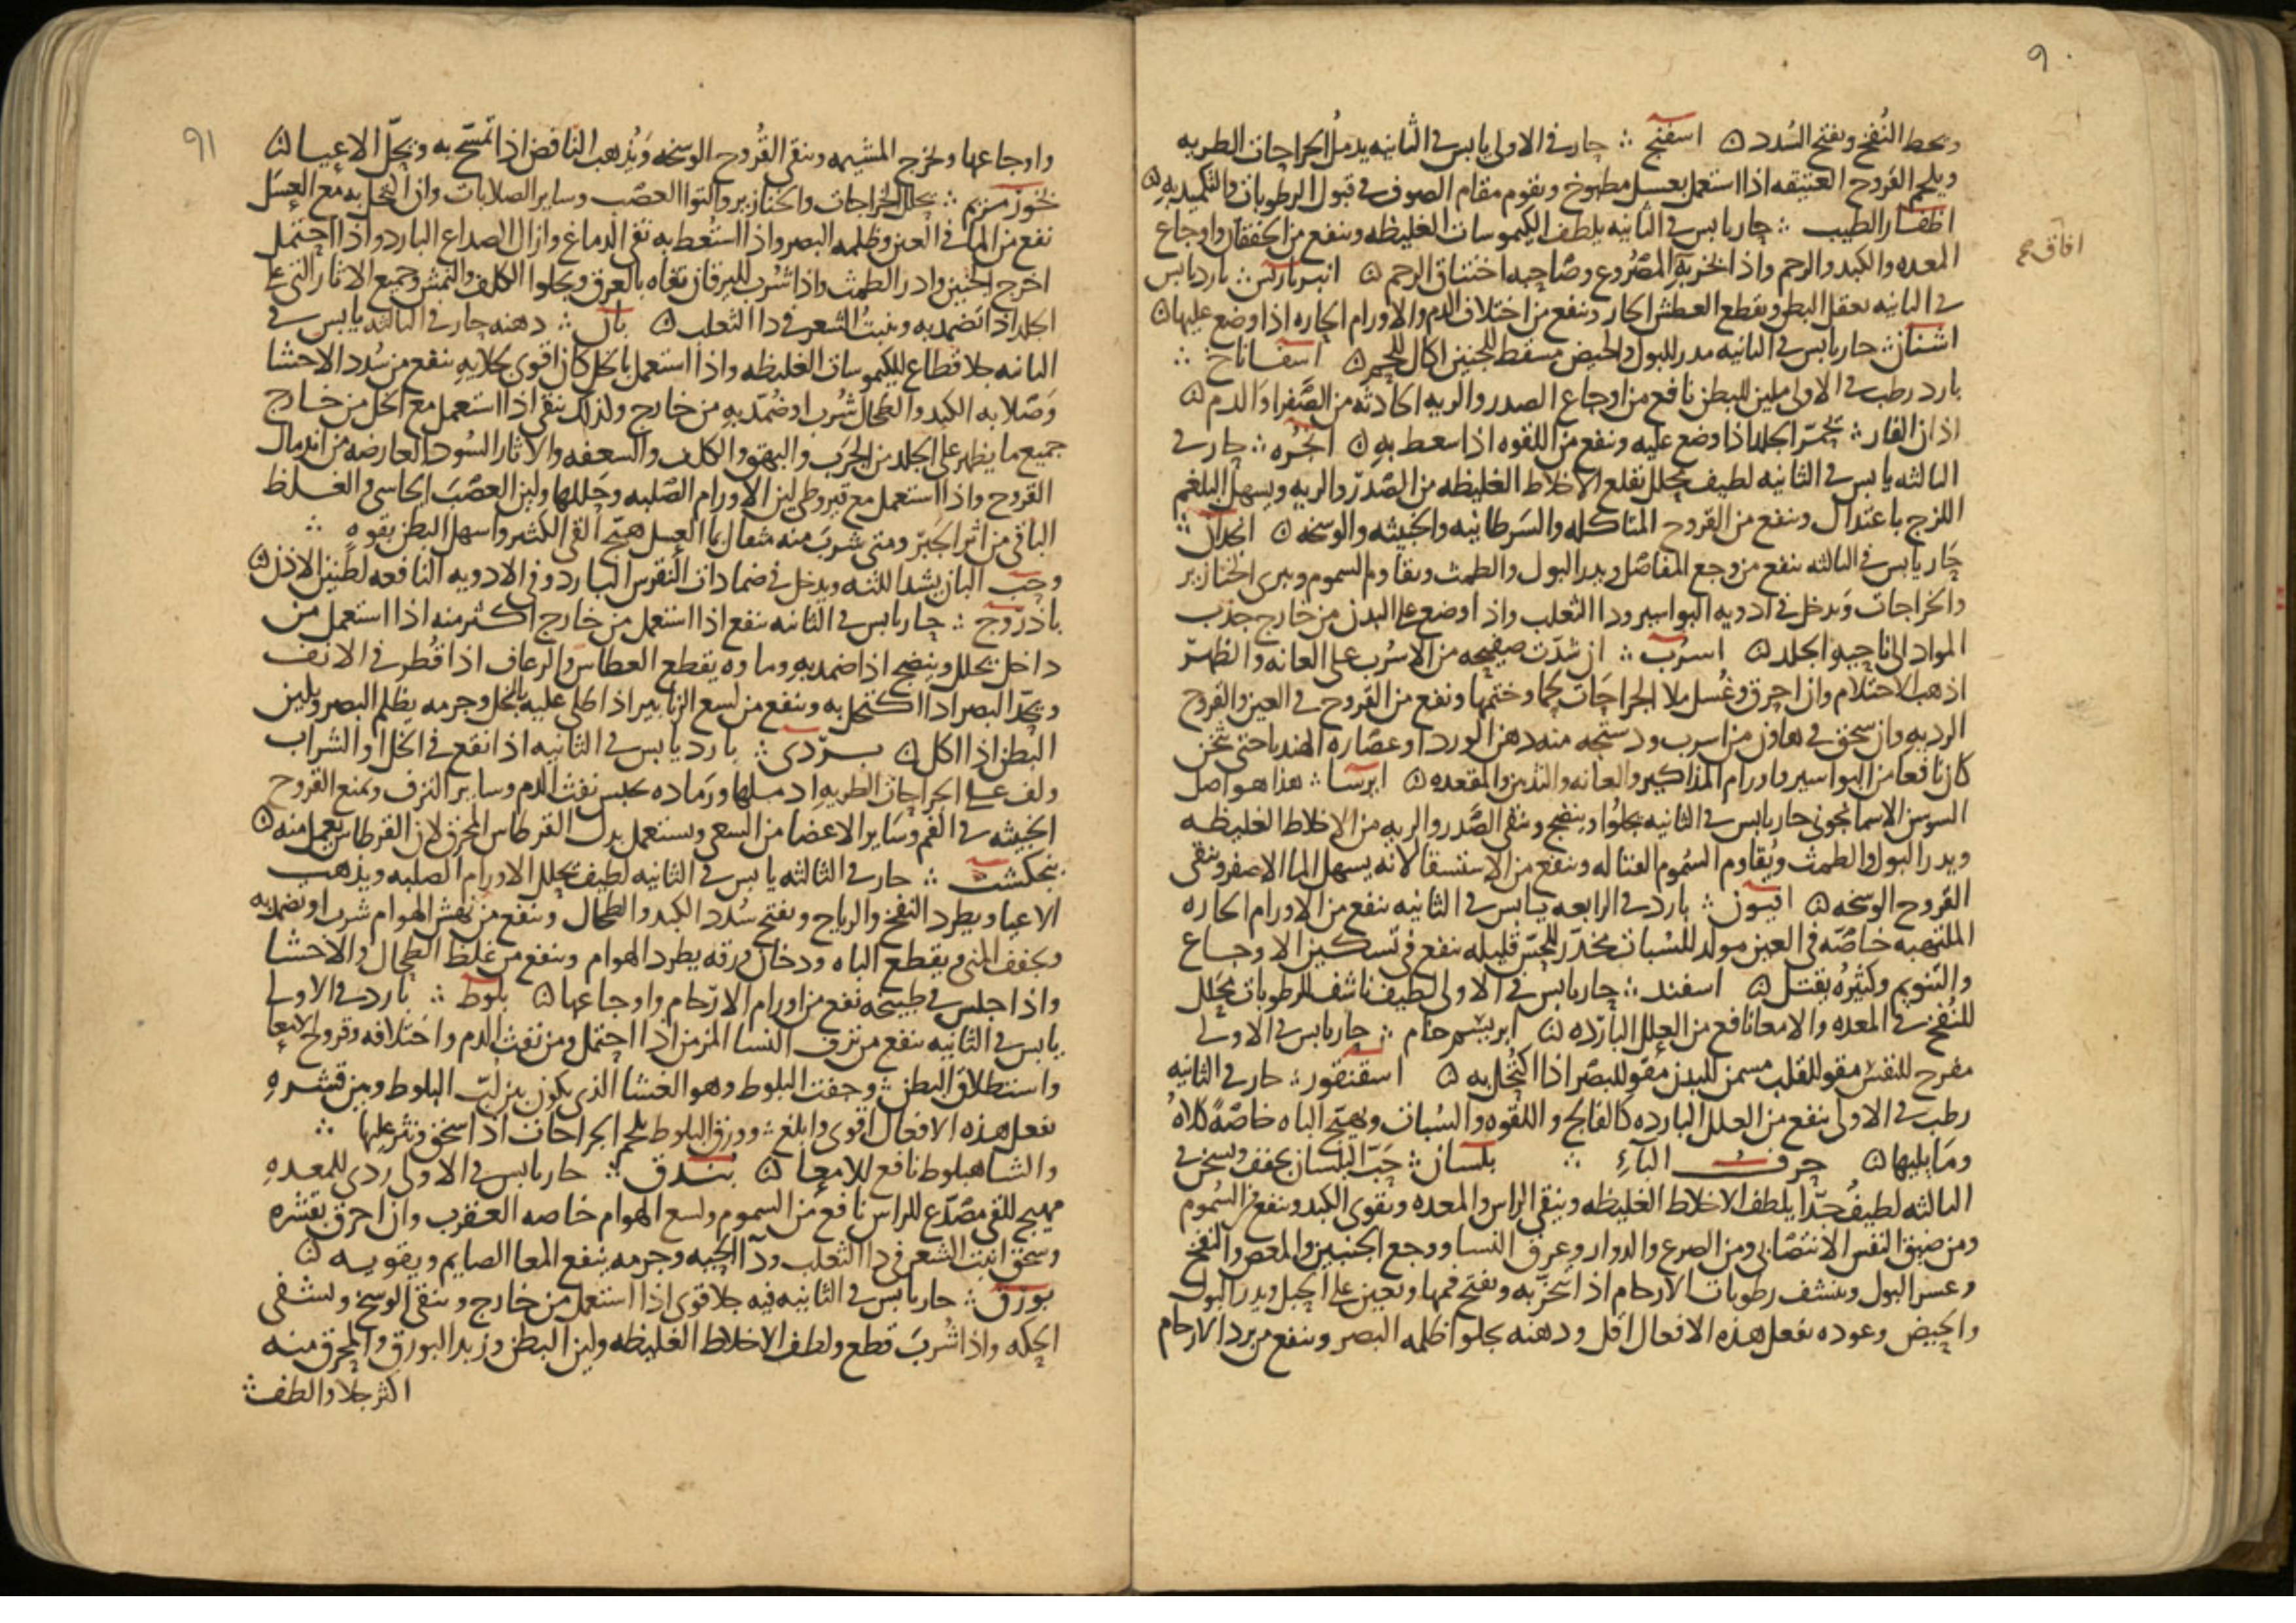 ٩٠
ويحط النفخ ويفتح السدد ۞ اسفنج ؞ حار في الاولى يابس في الثانيه يدمل الجراحات الطريه
ويلحم القروح العتيقه اذا استعمل بعسل مطبوخ ويقوم مقام الصوف في قبول الرطوبات والتكميد به ۞
اظفار الطيب ؞ حار يابس في الثانيه يلطف الكيموسات الغليظه وينفع من الخفقان واوجاع
المعده والكبد والرحم واذا بخر به المصروع وصاحبه اختناق الرحم ۞ انبرباريس ؞ بارد يابس
افاق صح
في الثانيه يعقل البطن ويقطع العطش الحار وينفع من اختلاف الدم والاورام الحاره اذا وضع عليها ۞
اشنان ؞ حار يابس في الثانيه مدر للبول والحيض مسقط للجنين اكال للحم ۞ اسفاناخ ؞
بارد رطب في الاولى ملين للبطن نافع من اوجاع الصدر والريه الحادثه من الصفرا والدم ۞
اذان الفار ؞ يحمر الجلد اذا وضع عليه وينفع من اللقوه اذا سعط به ۞ انجره ؞ حار في
الثالثه يابس في الثانيه لطيف محلل يقلع الاخلاط الغليظه من الصدر والريه ويسهل البلغم
اللزج باعتدال وينفع من القروح المتاكله والسرطانيه والخبيثه والوسخه ۞ انجدان ؞
حار يابس في الثالثه ينفع من وجع المفاصل ويدر البول والطمث ويقاوم السموم ويبرى الخنازير
والخراجات ويدخل في ادويه البواسير وداالثعلب واذا وضع على البدن من خارج جذب
المواد الى ناحيه الجلد ۞ اسرب ؞ ان شدت صفيحه من الاسرب على العانه والظهر
اذهب الاحتلام وان احرق وغسل ملا الجراحات لحما وختمها ونفع من القروح في العين والقروح
الرديه وان سحق في هاون من اسرب ودستجه منه دهن الورد او عصاره الهندبا حتى يثخن
كان نافعا من البواسير واورام المذاكير والعانه والثديين والمقعده ۞ ايرسا ؞ هذا هو اصل
السوسن الاسمانجونى حار يابس في الثانيه يجلوا وينضج وينقى الصدر والريه من الاخلاط الغليظه
ويدر البول والطمث ويقاوم السموم القتاله وينفع من الاستسقا لانه يسهل الما الاصفر وينقى
القروح الوسخه ۞ افيون ؞ بارد في الرابعه يابس في الثانيه ينفع من الاورام الحاره
الملتهبه خاصه في العين مولد للسبات مخدر للحس قليله ينفع في تسكين الاوجاع
والتنويم وكثيره يقتل ۞ اسفند ؞ حار يابس في الاولى لطيف ناشف للرطوبات محلل
للنفخ في المعده والامعا نافع من العلل البارده ۞ ابريسم خام ؞ حار يابس في الاولى
مفرح للنفس مقو للقلب مسمن للبدن مقو للبصر اذا اكتحل به ۞ اسقنقور ؞ حار في الثانيه
رطب في الاولى ينفع من العلل البارده كالفالج واللقوه والسبات ويهيج الباه خاصه كلاه
وما يليها ۞ حرف الباء ؞ بلسان ؞ حب البلسان يجفف ويسخن في
الثالثه لطيف جدا يلطف الاخلاط الغليظه وينقى الراس والمعده ويقوى الكبد وينفع من السموم
ومن ضيق النفس الانتصابى ومن الصرع والدوار وعرق النسا ووجع الجنبين والمغص والنفخ
وعسر البول وينشف رطوبات الارحام اذا تبخر به ويفتح فمها ويعين على الحبل ويدر البول
والحيض وعوده يفعل هذه الافعال اقل ودهنه يجلوا ظلمه البصر وينفع من برد الارحام
٩١
واوجاعها ويخرج المشيمه وينقى القروح الوسخه ويذهب النافض اذا تمسح به ويحل الاعيا ۞
بخور مريم ؞ يحلل الخراجات والخنازير والتوا العصب وساير الصلابات وان اكتحل به مع العسل
نفع من الما في العين وظلمه البصر واذا استعط به نقى الدماغ وازال الصداع البارد واذا احتمل
اخرج الجنين وادر الطمث واذا شرب لليرقان نفاه بالعرق ويجلوا الكلف والنمش وجميع الاثار التى على
الجلد اذا تضمد به وينبت الشعر في داالثعلب ۞ بان ؞ دهنه حار في الثالثه يابس في
الثانيه جلا قطاع للكيموسات الغليظه واذا استعمل بالخل كان اقوى جلايه ينفع من سدد الاحشا
وصلابه الكبد والطحال شرب او ضمد به من خارج ولذلك ينقى اذا استعمل مع الخل من خارج
جميع ما يظهر على الجلد من الجرب والبهق والكلف والسعفه والاثار السود العارضه من اندمال
القروح واذا استعمل مع قيروطى لين الاورام الصلبه وحللها ولين العصب الجاسى والغلظ
الباقى من اثر الجبر ومتى شرب منه مثقال بما العسل هيج القى الكثير واسهل البطن بقوه ؞
وحب البان يشد اللثه ويدخل في ضمادات النقرس البارد وفى الادويه النافعه لطنين الاذن ۞
باذروج ؞ حار يابس في الثانيه ينفع اذا استعمل من خارج اكثر منه اذا استعمل من
داخل يحلل وينضج اذا ضمد به وماوه يقطع العطاس والرعاف اذا قطر في الانف
ويحد البصر اذا اكتحل به وينفع من لسع الزنابير اذا طلى عليه بالخل وجرمه يظلم البصر ويلين
البطن اذا اكل ۞ بردى ؞ بارد يابس في الثانيه اذا نقع في الخل او الشراب
ولف على الجراحات الطريه ادملها ورماده يحبس نفث الدم وساير النزف ويمنع القروح
الخبيثه في الفم وساير الاعضا من السعى ويستعمل بدل القرطاس المحرق لان القرطاس يعمل منه ۞
بنجنكشت ؞ حار في الثالثه يابس في الثانيه لطيف يحلل الاورام الصلبه ويذهب
الاعيا ويطرد النفخ والرياح ويفتح سدد الكبد والطحال وينفع من نهش الهوام شرب او تضمد به
ويجفف المنى ويقطع الباه ودخان ورقه يطرد الهوام وينفع من غلظ الطحال والاحشا
واذا جلس في طبيخه نفع من اورام الارحام واوجاعها ۞ بلوط ؞ بارد في الاولى
يابس في الثانيه ينفع من نزف النسا المزمن اذا احتمل ومن نفث الدم واختلافه وقروح الامعا
واستطلاق البطن ؞ وجفت البلوط وهو الغشا الذى يكون بين لب البلوط وبين قشره
يفعل هذه الافعال اقوى وابلغ ؞ وورق البلوط يلحم الجراحات اذا سحق ونثر عليها ؞
والشاهبلوط نافع للامعا ۞ بندق ؞ حار يابس في الاولى ردى للمعده
مهيج للقى مصدع للراس نافع من السموم ولسع الهوام خاصه العقرب وان احرق بقشره
وسحق انبت الشعر في داالثعلب وداالحيه وجرمه ينفع المعا الصايم ويقويه ۞
بورق ؞ حار يابس في الثانيه فيه جلا قوى اذا استعمل من خارج وينقى الوسخ ويشفى
الحكه واذا شرب قطع ولطف الاخلاط الغليظه ولين البطن وزبد البورق والمحرق منه
اكثر جلا والطف ؞